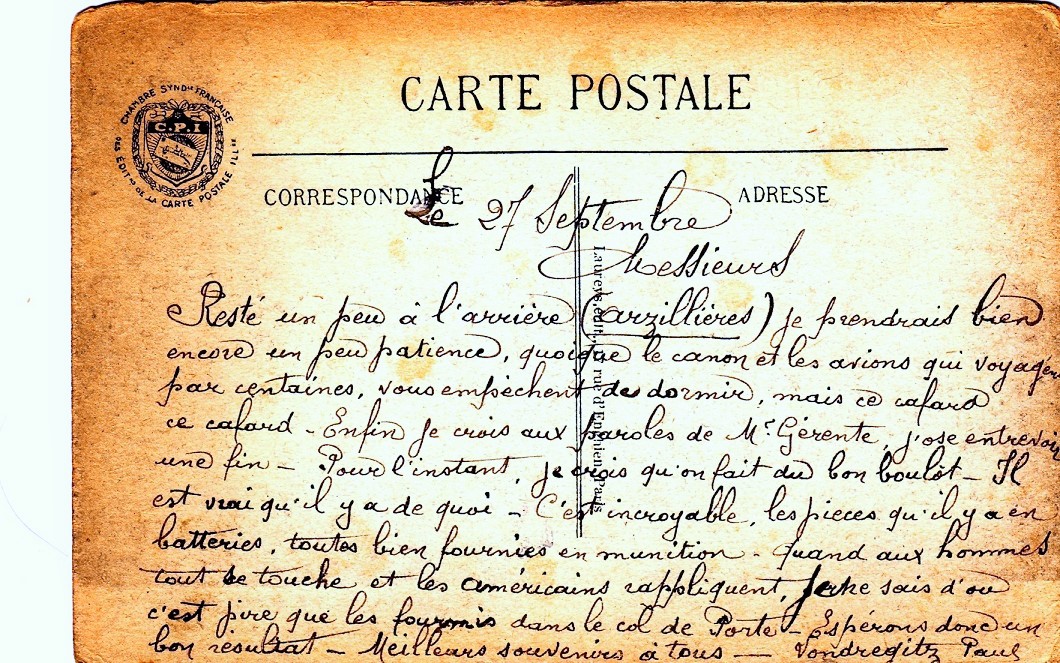 CHAMBRE SYND^le FRANÇAISE
C.P.I
DES ÉDIT^rs DE LA CARTE POSTALE ILL^ée
CARTE POSTALE
CORRESPONDANCE
ADRESSE
Le 27 Septembre
Messieurs
Resté un peu à l'arrière (arzillières) je prendrais bien
encore un peu patience, quoique le canon et les avions qui voyagent
par centaines, vous empêchent de dormir, mais ce cafard
ce cafard - Enfin je crois aux paroles de M^r Gérente, j'ose entrevoir
une fin - Pour l'instant, je crois qu'on fait du bon boulot - Il
est vrai qu'il y a de quoi - C'est incroyable, les pieces qu'il y a en
batteries, toutes bien fournies en munition - Quand aux hommes
tout se touche et les américains rappliquent, je ne sais d'ou
c'est pire que les fourmis dans le col de Porte - Espérons donc un
bon résultat - Meilleurs souvenirs à tous - Vondregitz Paul
Laureys, édit., rue d'Enghien, Paris